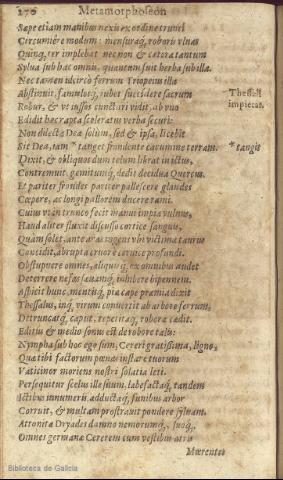 276 Metamorphoseòn
Sæpe etiam manibus nexis ex ordine trunci
Circuniere modum: mensuraq́; roboris vlnas
Quinq́; ter implebat nec non & cetera tantum
Sylua sub hac omnis, quantum fuit herba sub illa.
Nec tamen idcircò ferrum Triopeius illa
Abstinuit, famulosq́; iubet succidere sacrum
Robur, & vt iussos cunctari vidit, ab vno
Edidit hæc rapta sceleratus verba securi:
Non dilecta Deæ solùm, sed & ipsa, licebit
Sit Dea, iam * tanget frondente cacumine terram.
Dixit, & obliquos dum telum librat in ictus,
Contremuit, gemitumq́; dedit decidua Quercus.
Et pariter frondes pariter pallescere glandes
Cœpere, ac longi pallorem ducere rami.
Cuius vt in trunco fecit manus impia vulnus,
Haud aliter fluxit discusso cortice sanguis,
Quàm solet, ante aras ingens vbi victima taurus
Concidit, abrupta cruor è ceruice profundi.
Obstupuere omnes, aliquisq́; ex omnibus audet
Deterrere nefas sæuamq́; inhibere bipennem.
Aspicit hunc, mentisq́; piæ cape præmia dixit
Thessalus, inq́; virum conuertit ab arbore ferrum,
Detruncatq́; caput, repetitaq́; robora cædit.
Editus & medio sonus est de robore talis:
Nympha sub hoc ego sum, Cereri gratissima, ligno,
Quæ tibi factorum pœnas instare tuorum
Vaticinor moriens nostri solatia leti.
Persequitur scelus ille suum, labefactaq́; tandem
Ictibus innumeris adductaq́; funibus arbor
Corruit, & multam prostrauit pondere syluam.
Attonitæ Dryades damno nemorumq́;, suoq́;,
Omnes germanæ Cererem cum vestibus atris
Mœrentes
Thessali
impietas.
* tangit
Biblioteca de Galicia